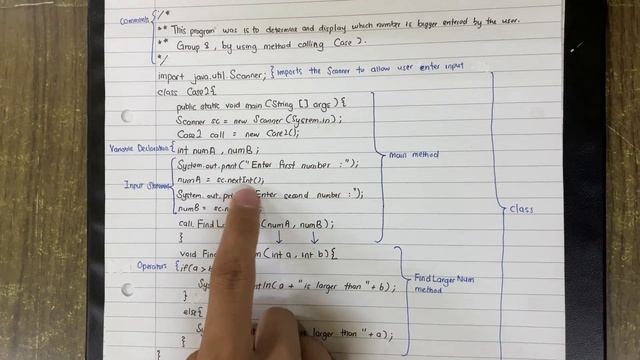 Comments { /*
** This program was is to determine and display which number is bigger entered by the user.
** Group 8, by using method calling Case 2.
*/
import java.util.Scanner; } Imports the Scanner to allow user enter input
class Case2{
public static void main (String [] args) {
Scanner sc = new Scanner (System.in);
Case2 call = new Case2();
Variable Declaration { int numA , numB ;
System.out.print ("Enter first number :");
main method
numA = sc.nextInt();
Input
System.out. Enter second number : ");
numB = sc.
class
call. Find (numA , numB) ;
}
void Find (int a , int b) {
Operators { if(a >
Find Larger Num
method
(a + "is larger than" + b) ;
}
else {
is larger than " + a) ;
}
}